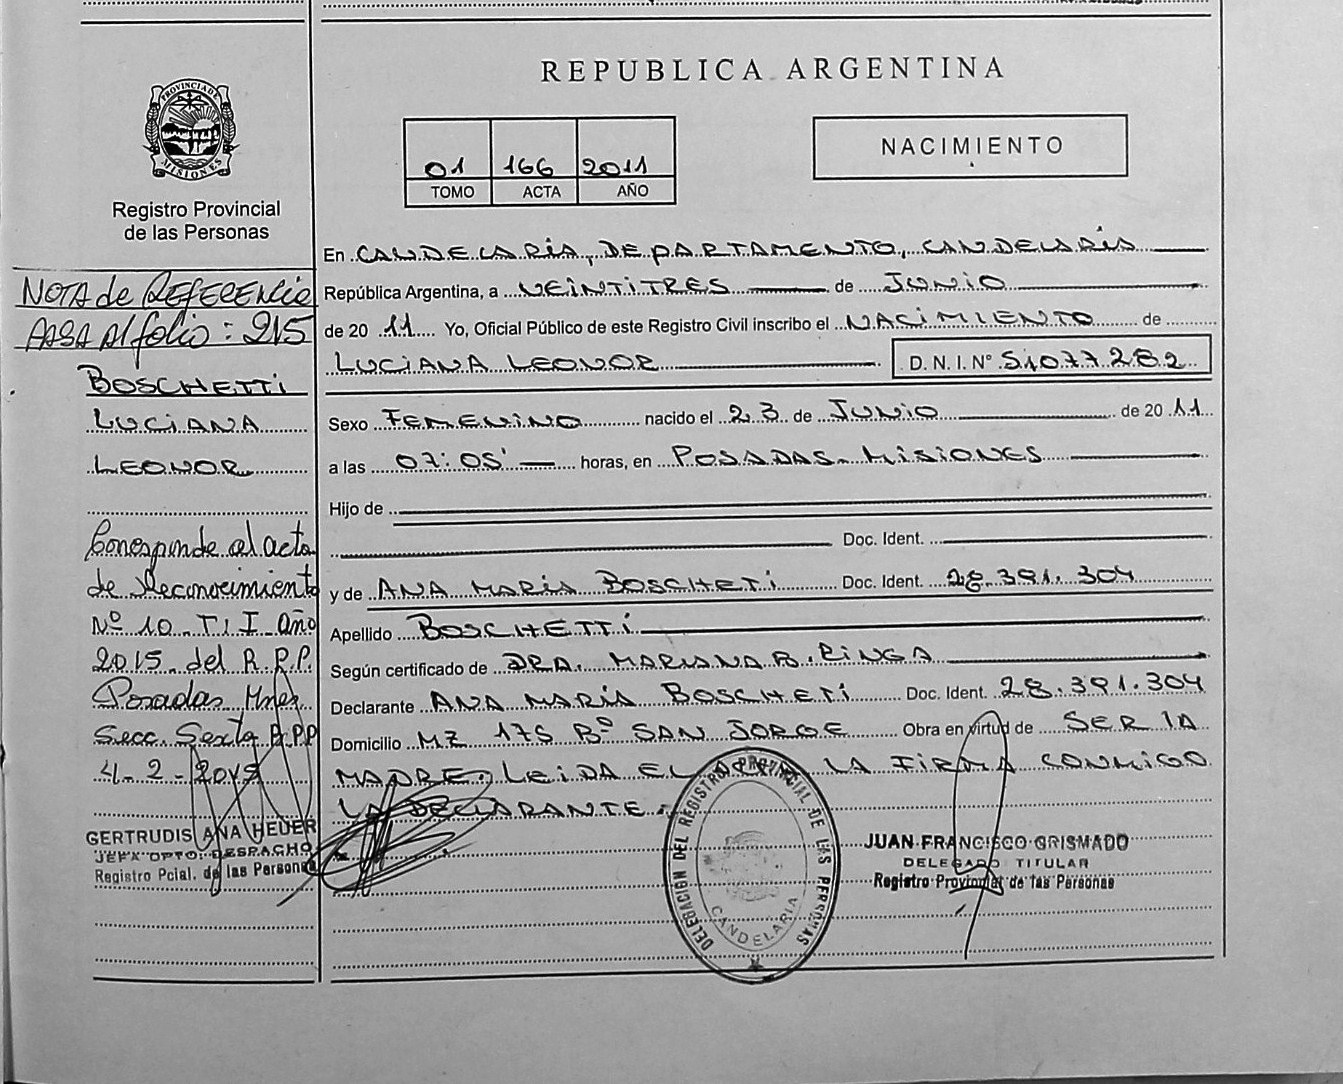 REPUBLICA ARGENTINA
PROVINCIA DE
MISIONES
Registro Provincial
de las Personas
01 166 2011
TOMO ACTA AÑO
NACIMIENTO
NOTA de REFERENCIA
PASA Al folio: 215
BOSCHETTI
LUCIANA
LEONOR
Corresponde al acta
de Reconocimiento
Nº 10 - T: I Año
2015 del R.P.P.
Posadas Mnes.
Secc. Sexta R.P.P
4-2-2015
GERTRUDIS ANA HEUER
JEFA DPTO. DESPACHO
Registro Pcial. de las Personas
En CANDELARIA, DEPARTAMENTO, CANDELARIA
República Argentina, a VEINTITRES de JUNIO
de 2011 Yo, Oficial Público de este Registro Civil inscribo el NACIMIENTO de
LUCIANA LEONOR D. N. I. Nº 51077282
Sexo FEMENINO nacido el 23 de JUNIO de 2011
a las 07:05' horas, en POSADAS - MISIONES
Hijo de
Doc. Ident.
y de ANA MARIA BOSCHETI Doc. Ident. 28.391.304
Apellido BOSCHETTI
Según certificado de DRA. MARIANA B. RINGA
Declarante ANA MARIA BOSCHETI Doc. Ident. 28.391.304
Domicilio MZ 175 Bº SAN JORGE Obra en virtud de SER LA
MADRE. LEIDA EL ACTA LA FIRMA CONMIGO
LA DECLARANTE.
DELEGACIÓN DEL REGISTRO PROVINCIAL DE LAS PERSONAS
CANDELARIA
JUAN FRANCISCO GRISMADO
DELEGADO TITULAR
Registro Provincial de las Personas